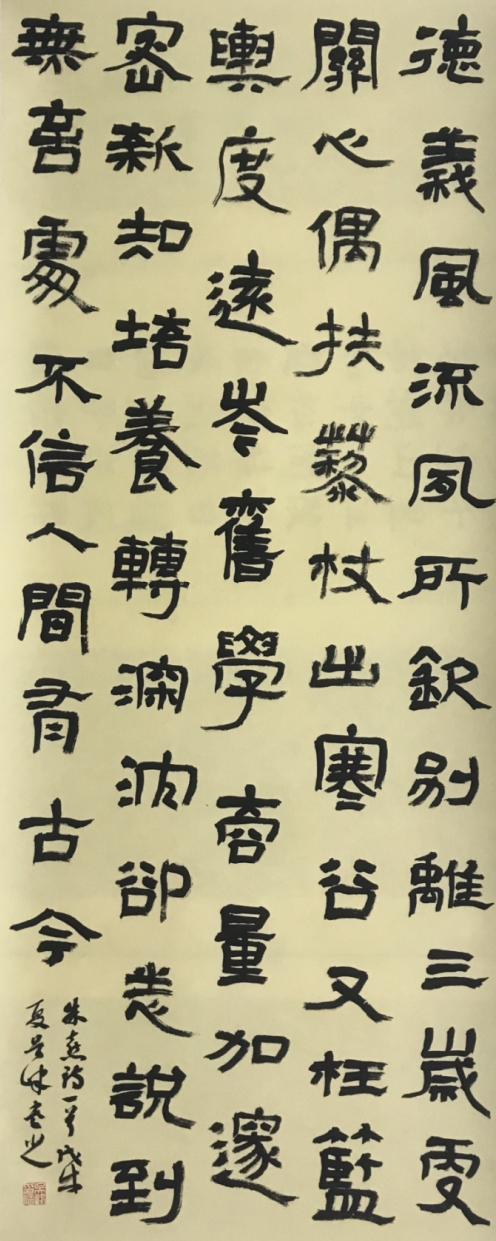 德義風流夙所欽别離三歲更
關心偶扶藜杖出寒谷又枉籃
輿度遠岑舊學商量加邃
密新知培養轉深沈卻愁說到
無言處不信人間有古今
朱熹詩一首戊戌
夏